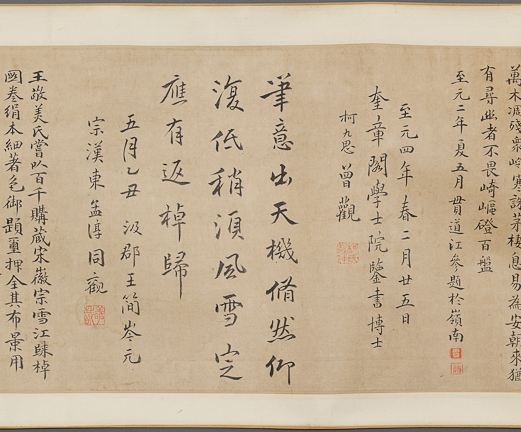 萬木凋殘衆峰寒誅茅棲息易為安朝來猶
有尋幽者不畏崎嶇磴百盤
至元二年夏五月貫道江參題於嶺南
至元四年春二月廿五日
奎章閣學士院鑒書博士
柯九思曾觀
筆意出天機脩然仰
復低稍須風雪定
應有返棹歸
五月乙丑 汲郡王簡岑元
宗漢東孟惇同觀
王敬美氏嘗以百千購藏宋徽宗雪江歸棹
圖卷絹本細著色御題璽押全其布景用